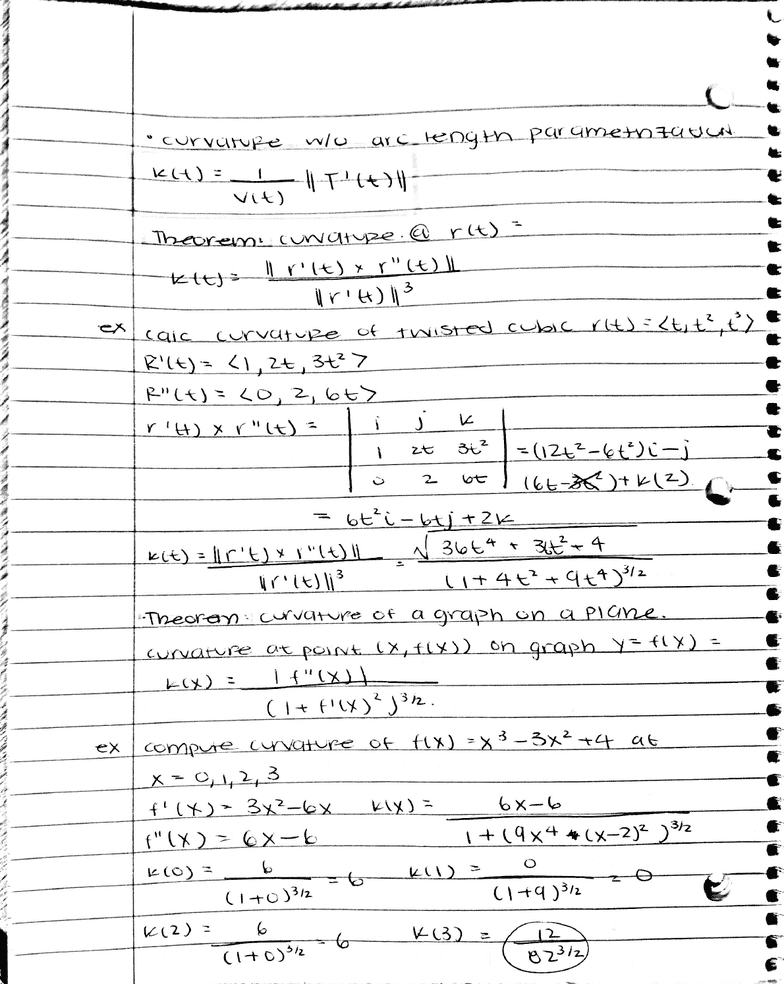 • curvature w/o arc length parametrization
k(t) = 1 / v(t) ‖T'(t)‖
Theorem: curvature @ r(t) =
k(t) = ‖r'(t) × r''(t)‖ / ‖r'(t)‖³
ex calc curvature of twisted cubic r(t) = <t, t², t³>
R'(t) = <1, 2t, 3t²>
R''(t) = <0, 2, 6t>
r'(t) × r''(t) = | i j k |
| 1 2t 3t² | = (12t² - 6t²)i - j
| 0 2 6t | (6t - 3t²) + k(2)
= 6t²i - 6tj + 2k
k(t) = ‖r'(t) × r''(t)‖ / ‖r'(t)‖³ = √(36t⁴ + 36t² + 4) / (1 + 4t² + 9t⁴)^3/2
Theorem: curvature of a graph on a plane.
curvature at point (x, f(x)) on graph y = f(x) =
k(x) = |f''(x)| / (1 + f'(x)²)^3/2.
ex compute curvature of f(x) = x³ - 3x² + 4 at
x = 0, 1, 2, 3
f'(x) = 3x² - 6x k(x) = 6x - 6 / 1 + (9x⁴ + (x-2)²)^3/2
f''(x) = 6x - 6
k(0) = 6 / (1+0)^3/2 = 6 k(1) = 0 / (1+9)^3/2 = 0
k(2) = 6 / (1+0)^3/2 = 6 k(3) = 12 / 82^3/2